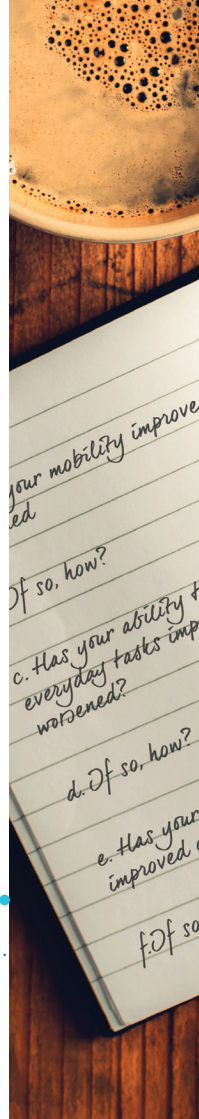 your mobility improve
ed
If so, how?
c. Has your ability t
everyday tasks imp
worsened?
d. If so, how?
e. Has your
improved o
f. If so